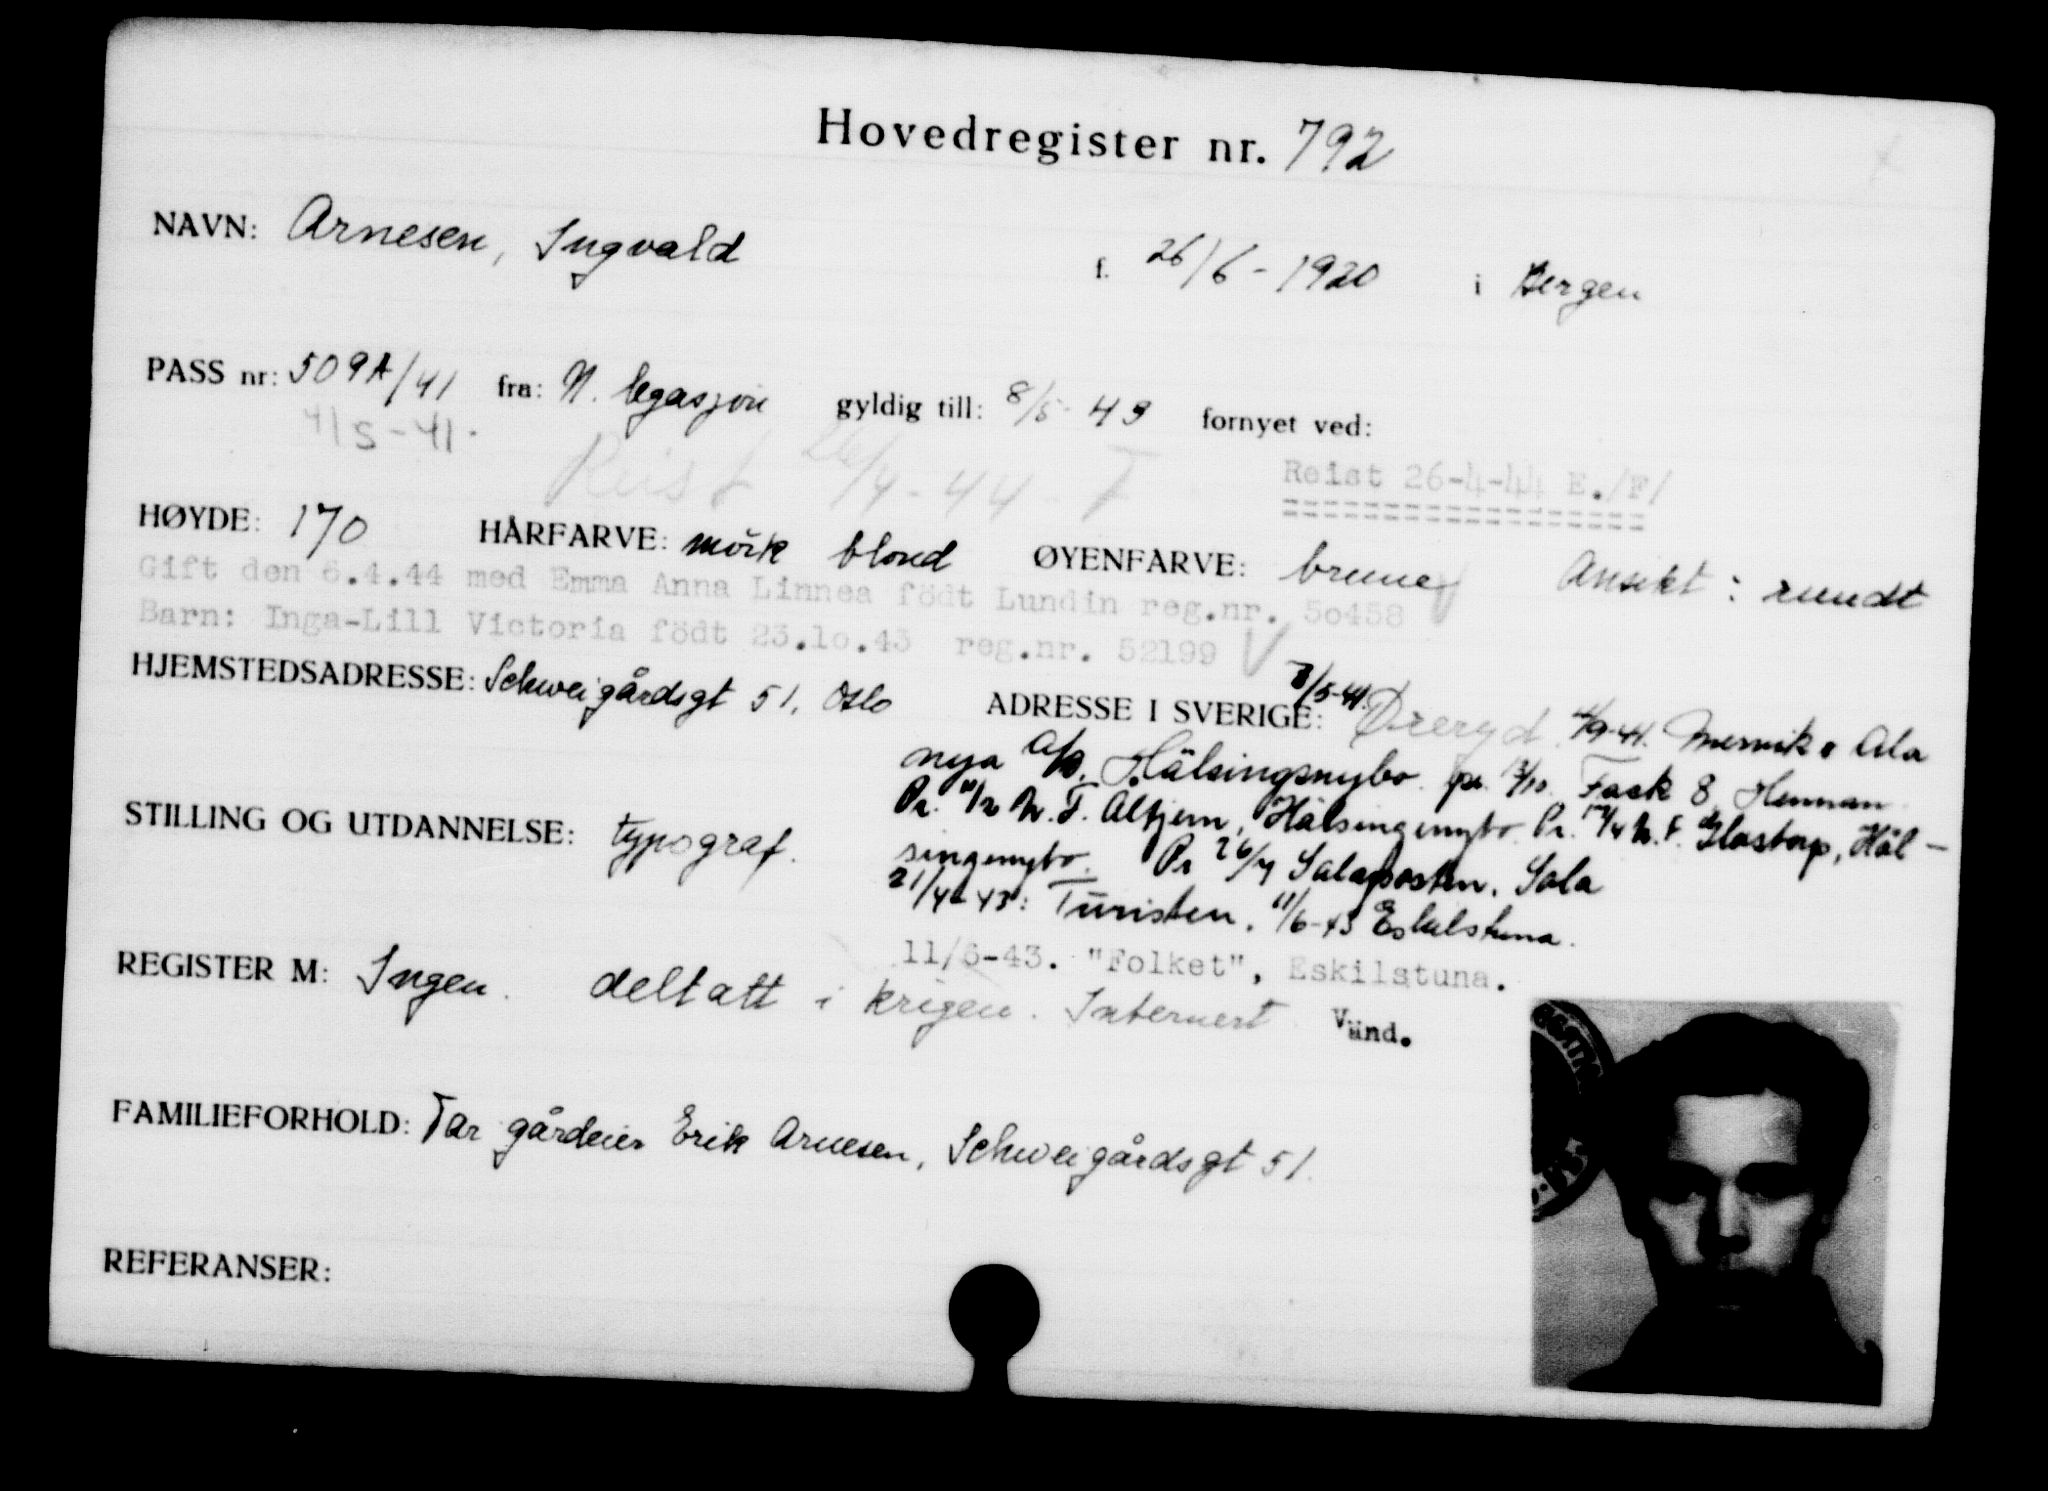 Hovedregister nr. 792
NAVN: Arnesen, Ingvald f. 26/6-1920 i Bergen
PASS nr: 509A/41 fra: N. legasjon gyldig till: 8/5-43 fornyet ved:
41s-41.
Reist 26/4-44-F
Reist 26-4-44 E./F/
HØYDE: 170 HÅRFARVE: mörk blond ØYENFARVE: brune Ansikt: rundt
Gift den 6.4.44 med Emma Anna Linnea födt Lundin reg.nr. 50458
Barn: Inga-Lill Victoria födt 23.10.43 reg.nr. 52199 V
HJEMSTEDSADRESSE: Schweigårdsgt 51, Oslo
ADRESSE I SVERIGE: 8/5-41. Øreryd 4/9-41. Ala
nya A/B. Hälsingsnybo pr. 3/10. Fack 8, Hennan
Pr. 11/2 h. F. Altjern, Hälsingenybo Pr. 17/4 h. F. Glastorp, Häl-
singenybo. Pr 26/7 Salaposten, Sala
21/4-43: Turisten. 11/6-43 Eskilstuna.
11/6-43. "Folket", Eskilstuna.
STILLING OG UTDANNELSE: typograf.
REGISTER M: Ingen. deltatt i krigen. Internert Vänd.
FAMILIEFORHOLD: Far gårdeier Erik Arnesen, Schweigårdsgt 51.
REFERANSER: